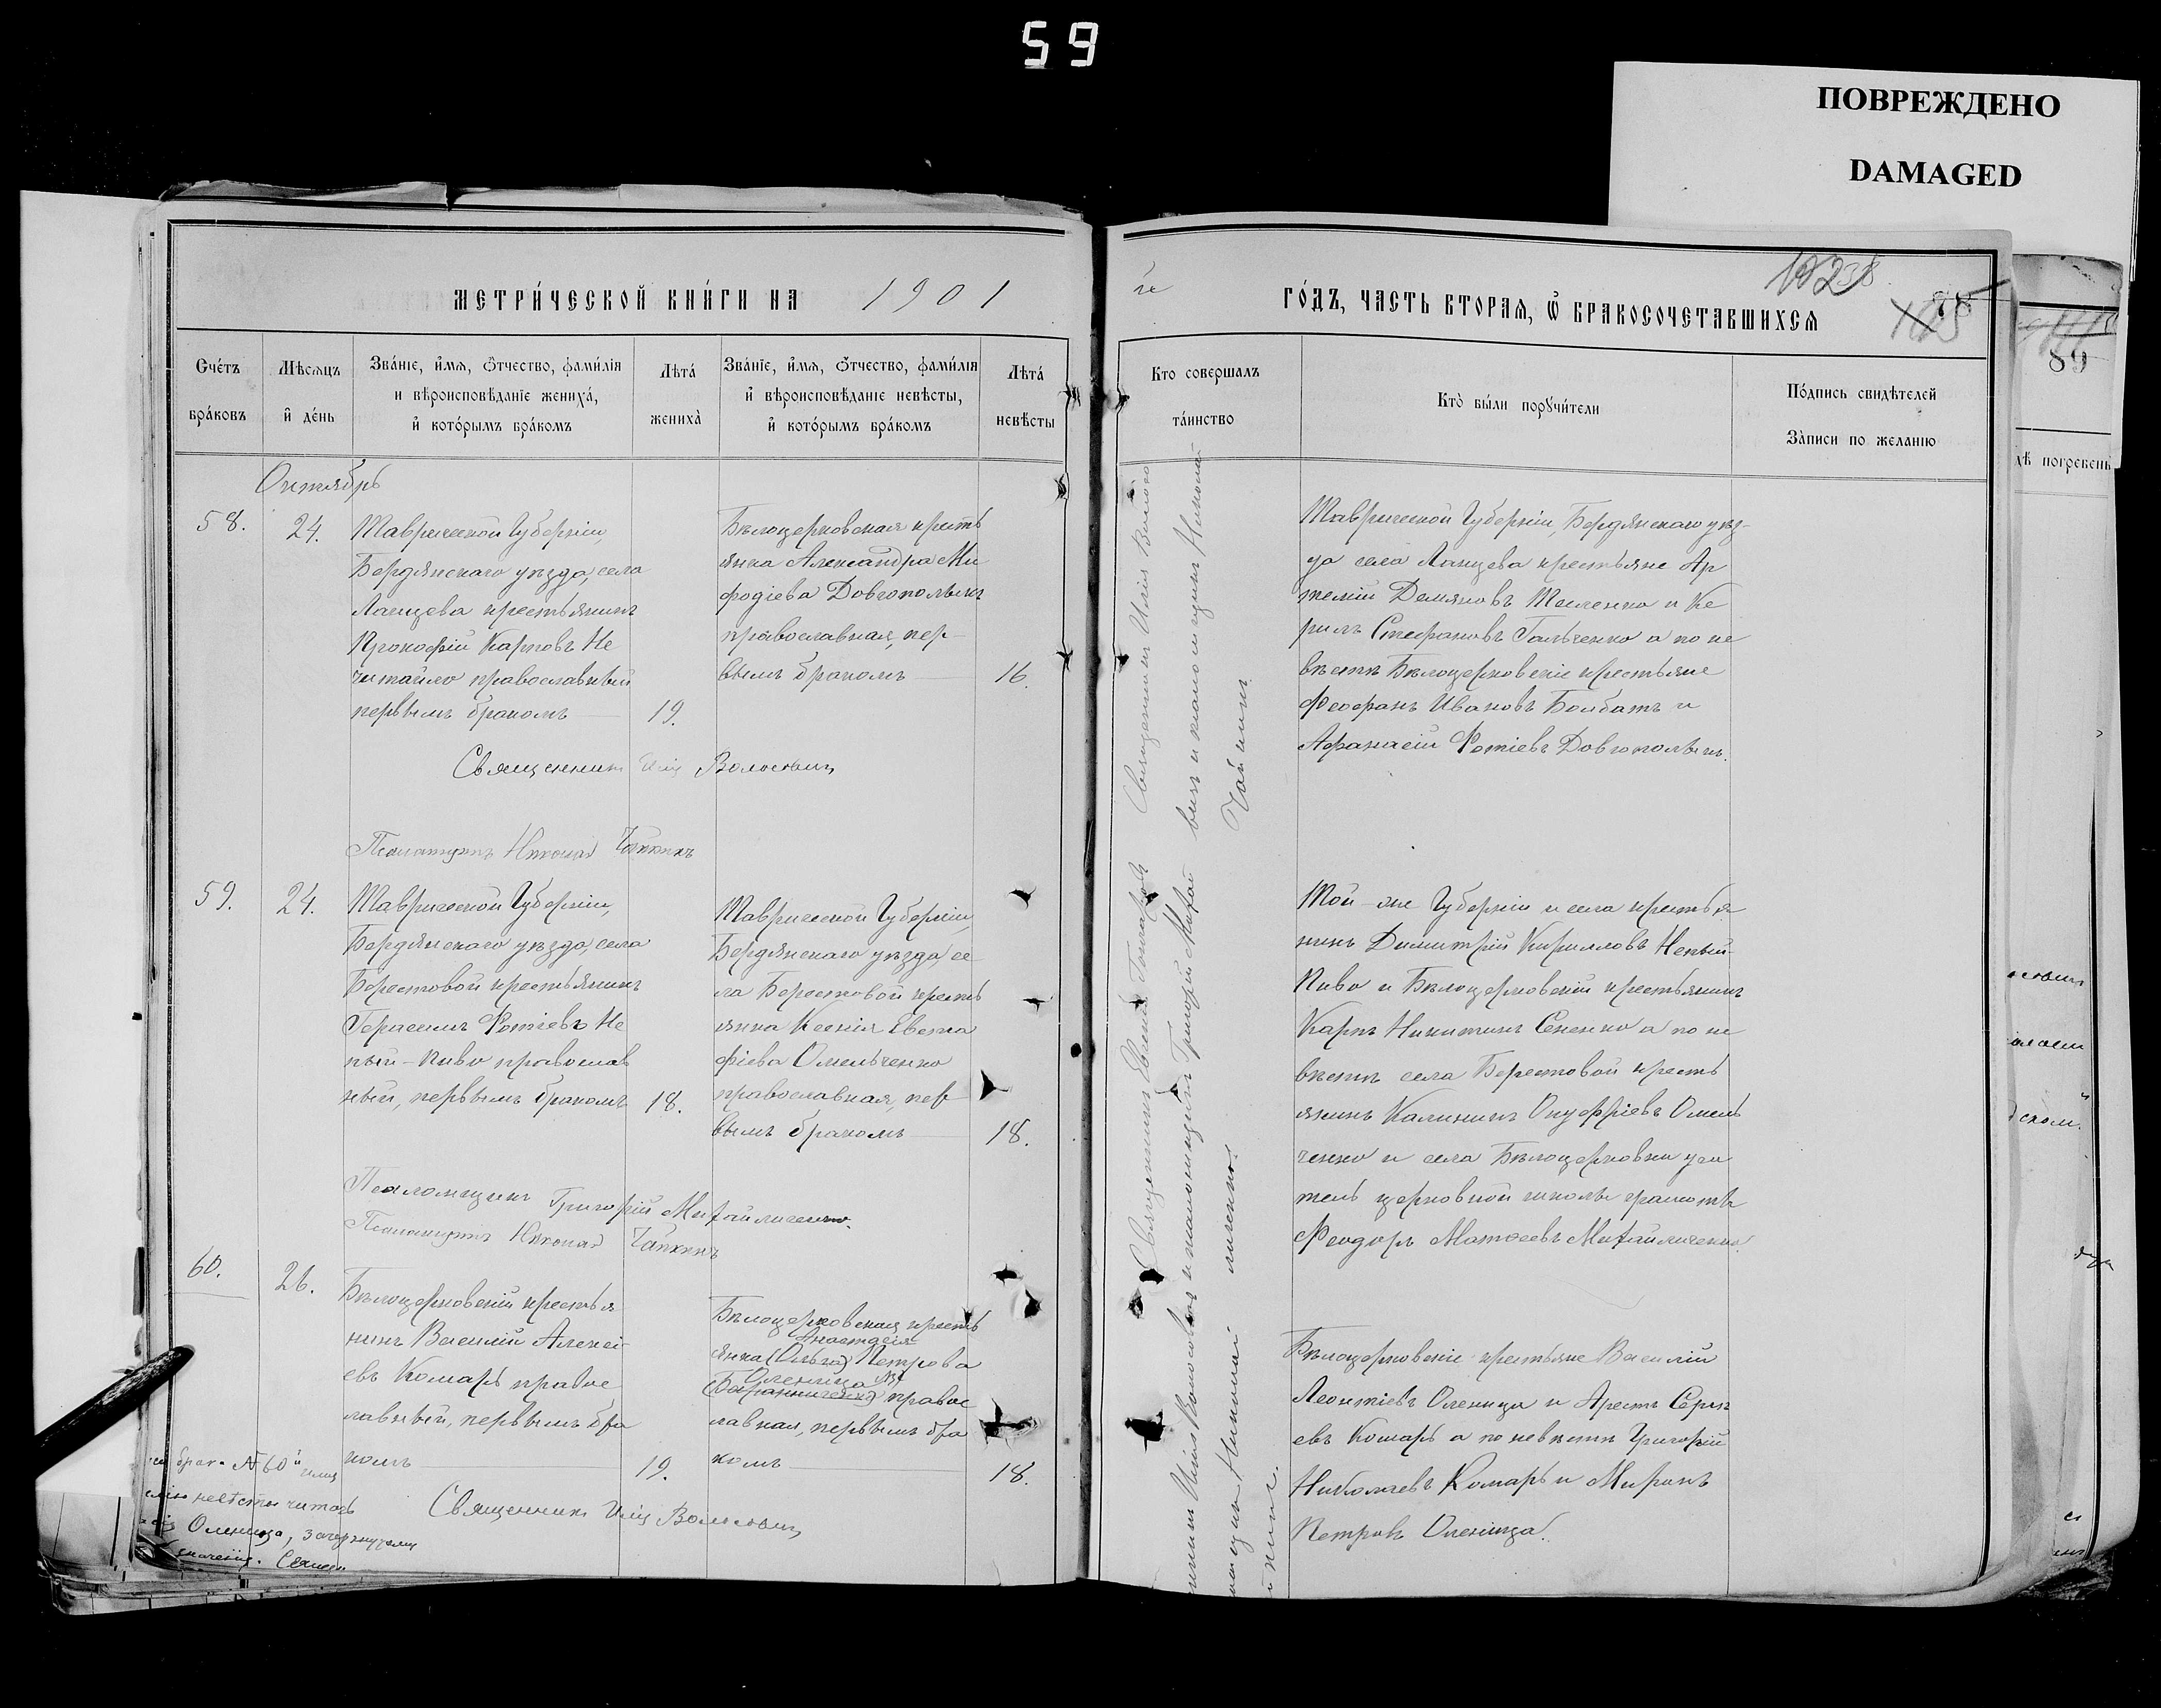 59
ПОВРЕЖДЕНО
DAMAGED
МЕТРИ́ЧЕСКОЙ КНИ́ГИ НА 1901
Сче́тъ
бра́ковъ
Мѣсѧцъ
и҆ де́нь
Зва́нїе, и҆́мѧ, ѻ҆́тчество, фами́лїѧ
и вѣроисповѣ́данїе жениха̀,
и҆ кото́рымъ бра́комъ
Лѣта́
жениха̀
Зва́нїе, и҆́мѧ, ѻ҆́тчество, фами́лїѧ
и҆ вѣроисповѣ́данїе невѣ́сты,
и҆ кото́рымъ бра́комъ
Лѣта́
невѣ́сты
Октябрь
58.
24.
Таврической Губерніи,
Бердянскаго уѣзда, села
Ланцева крестьянинъ
Прокофій Карповъ Не
читайло православный
первымъ бракомъ
19.
Бѣлоцерковская кресть
янка Александра Ме
фодіева Довгополыхъ
православная, пер-
вымъ бракомъ
16.
Священникъ Илія Волосовичъ
Псаломщикъ Николай Чайкинъ
59.
24.
Таврической Губерніи,
Бердянскаго уѣзда, села
Берестовой крестьянинъ
Герасимъ Фотіевъ Не
пый-Пиво православ
ный, первымъ бракомъ
18.
Таврической Губерніи,
Бердянскаго уѣзда, се
ла Берестовой кресть
янка Ксенія Евста
фіева Омельченко
православная, пер
вымъ бракомъ
18.
Псаломщикъ Григорій Михайличенко.
Псаломщикъ Николай Чайкинъ
60.
26.
Бѣлоцерковскій крестья
нинъ Василій Алексі-
евъ Комарь правос
лавный, первымъ бра
комъ
19.
Бѣлоцерковская кресть
Анастасія
янка (Ольга) Петрова
Оленица
(Баранниченко) правос
лавная, первымъ бра
комъ
18.
Священникъ Илія Волосовичъ
брака № 60й
невѣсты читать
Оленица, зачеркнутыя
ГО́ДЪ, ЧАСТЬ ВТОРАѦ, Ѡ҆ БРАКОСОЧЕТАВШИХСѦ
78
Кто совершалъ
та́инство
Кто̀ бы́ли порꙋчи́тели
По́дпись свидѣтелей
За́писи по желанїю
Священникъ Илія Волосо
вичъ и псаломщикъ Николай
Чайкинъ.
Священникъ Евгеній Гончаровъ
и псаломщикъ Григорій Михай
личенко.
Илія Волосовичъ
Николай
Таврической Губерніи, Бердянскаго уѣз-
да села Ланцева крестьяне Ар
темій Демяновъ Тесленко и Ке
рилъ Стефановъ Гальченко а по не
вѣстѣ Бѣлоцерковскіе крестьяне
Феофанъ Ивановъ Болбатъ и
Афанасій Фотіевъ Довгополыхъ.
Той-же Губерніи и села крестья
нинъ Димитрій Кирилловъ Непый-
Пиво и Бѣлоцерковскій крестьянинъ
Карпъ Никитинъ Сененко а по не
вѣстѣ села Берестовой кресть
янинъ Калинникъ Онуфріевъ Омель
ченко и села Бѣлоцерковки учи
тель церковной школы грамоты
Феодоръ Матѳеевъ Михайличенко.
Бѣлоцерковскіе крестьяне Василій
Леонтіевъ Оленица и Арестъ Сергѣ
евъ Комарь а по невѣстѣ Григорій
Николаевъ Комарь и Миронъ
Петровъ Оленица.
89
погребены